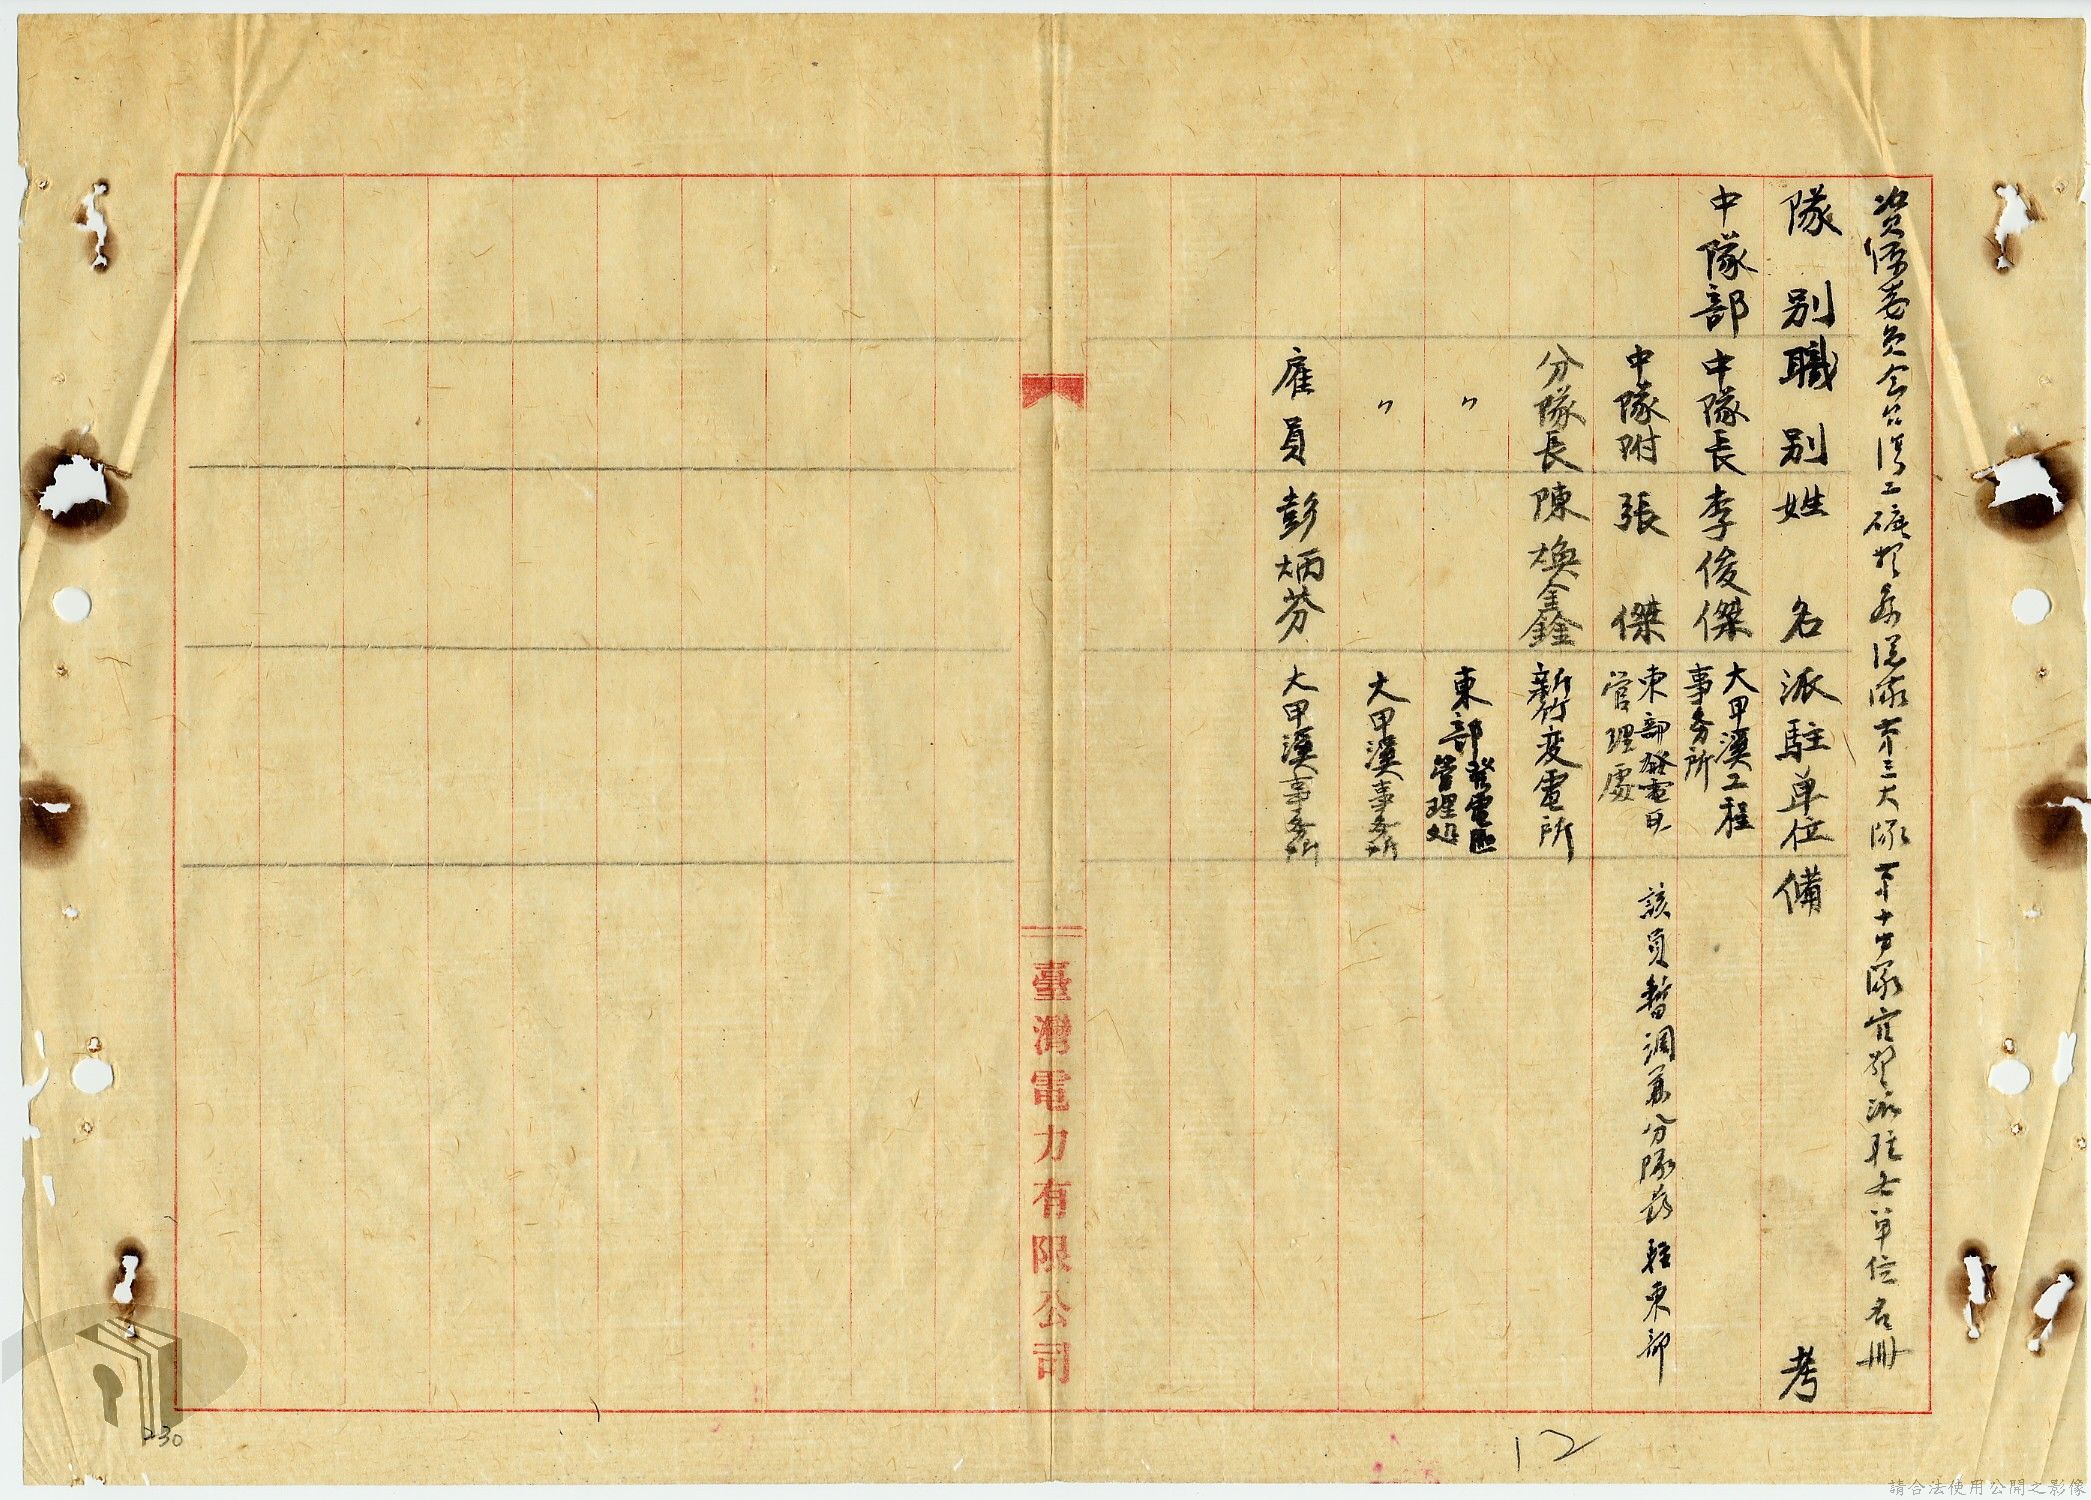 資源委員會台灣工礦警察總隊第三大隊第十中隊官警派駐各單位名冊
隊別 職別 姓名 派駐單位 備考
中隊部 中隊長 李俊傑 大甲溪工程事務所
中隊附 張傑 東部發電區管理處 該員暫調兼分隊長駐東部
分隊長 陳煥鑫 新竹變電所
〃 東部發電區管理処
〃 大甲溪事務所
雇員 彭炳芬 大甲溪事務所
臺灣電力有限公司
12
230
請合法使用公開之影像